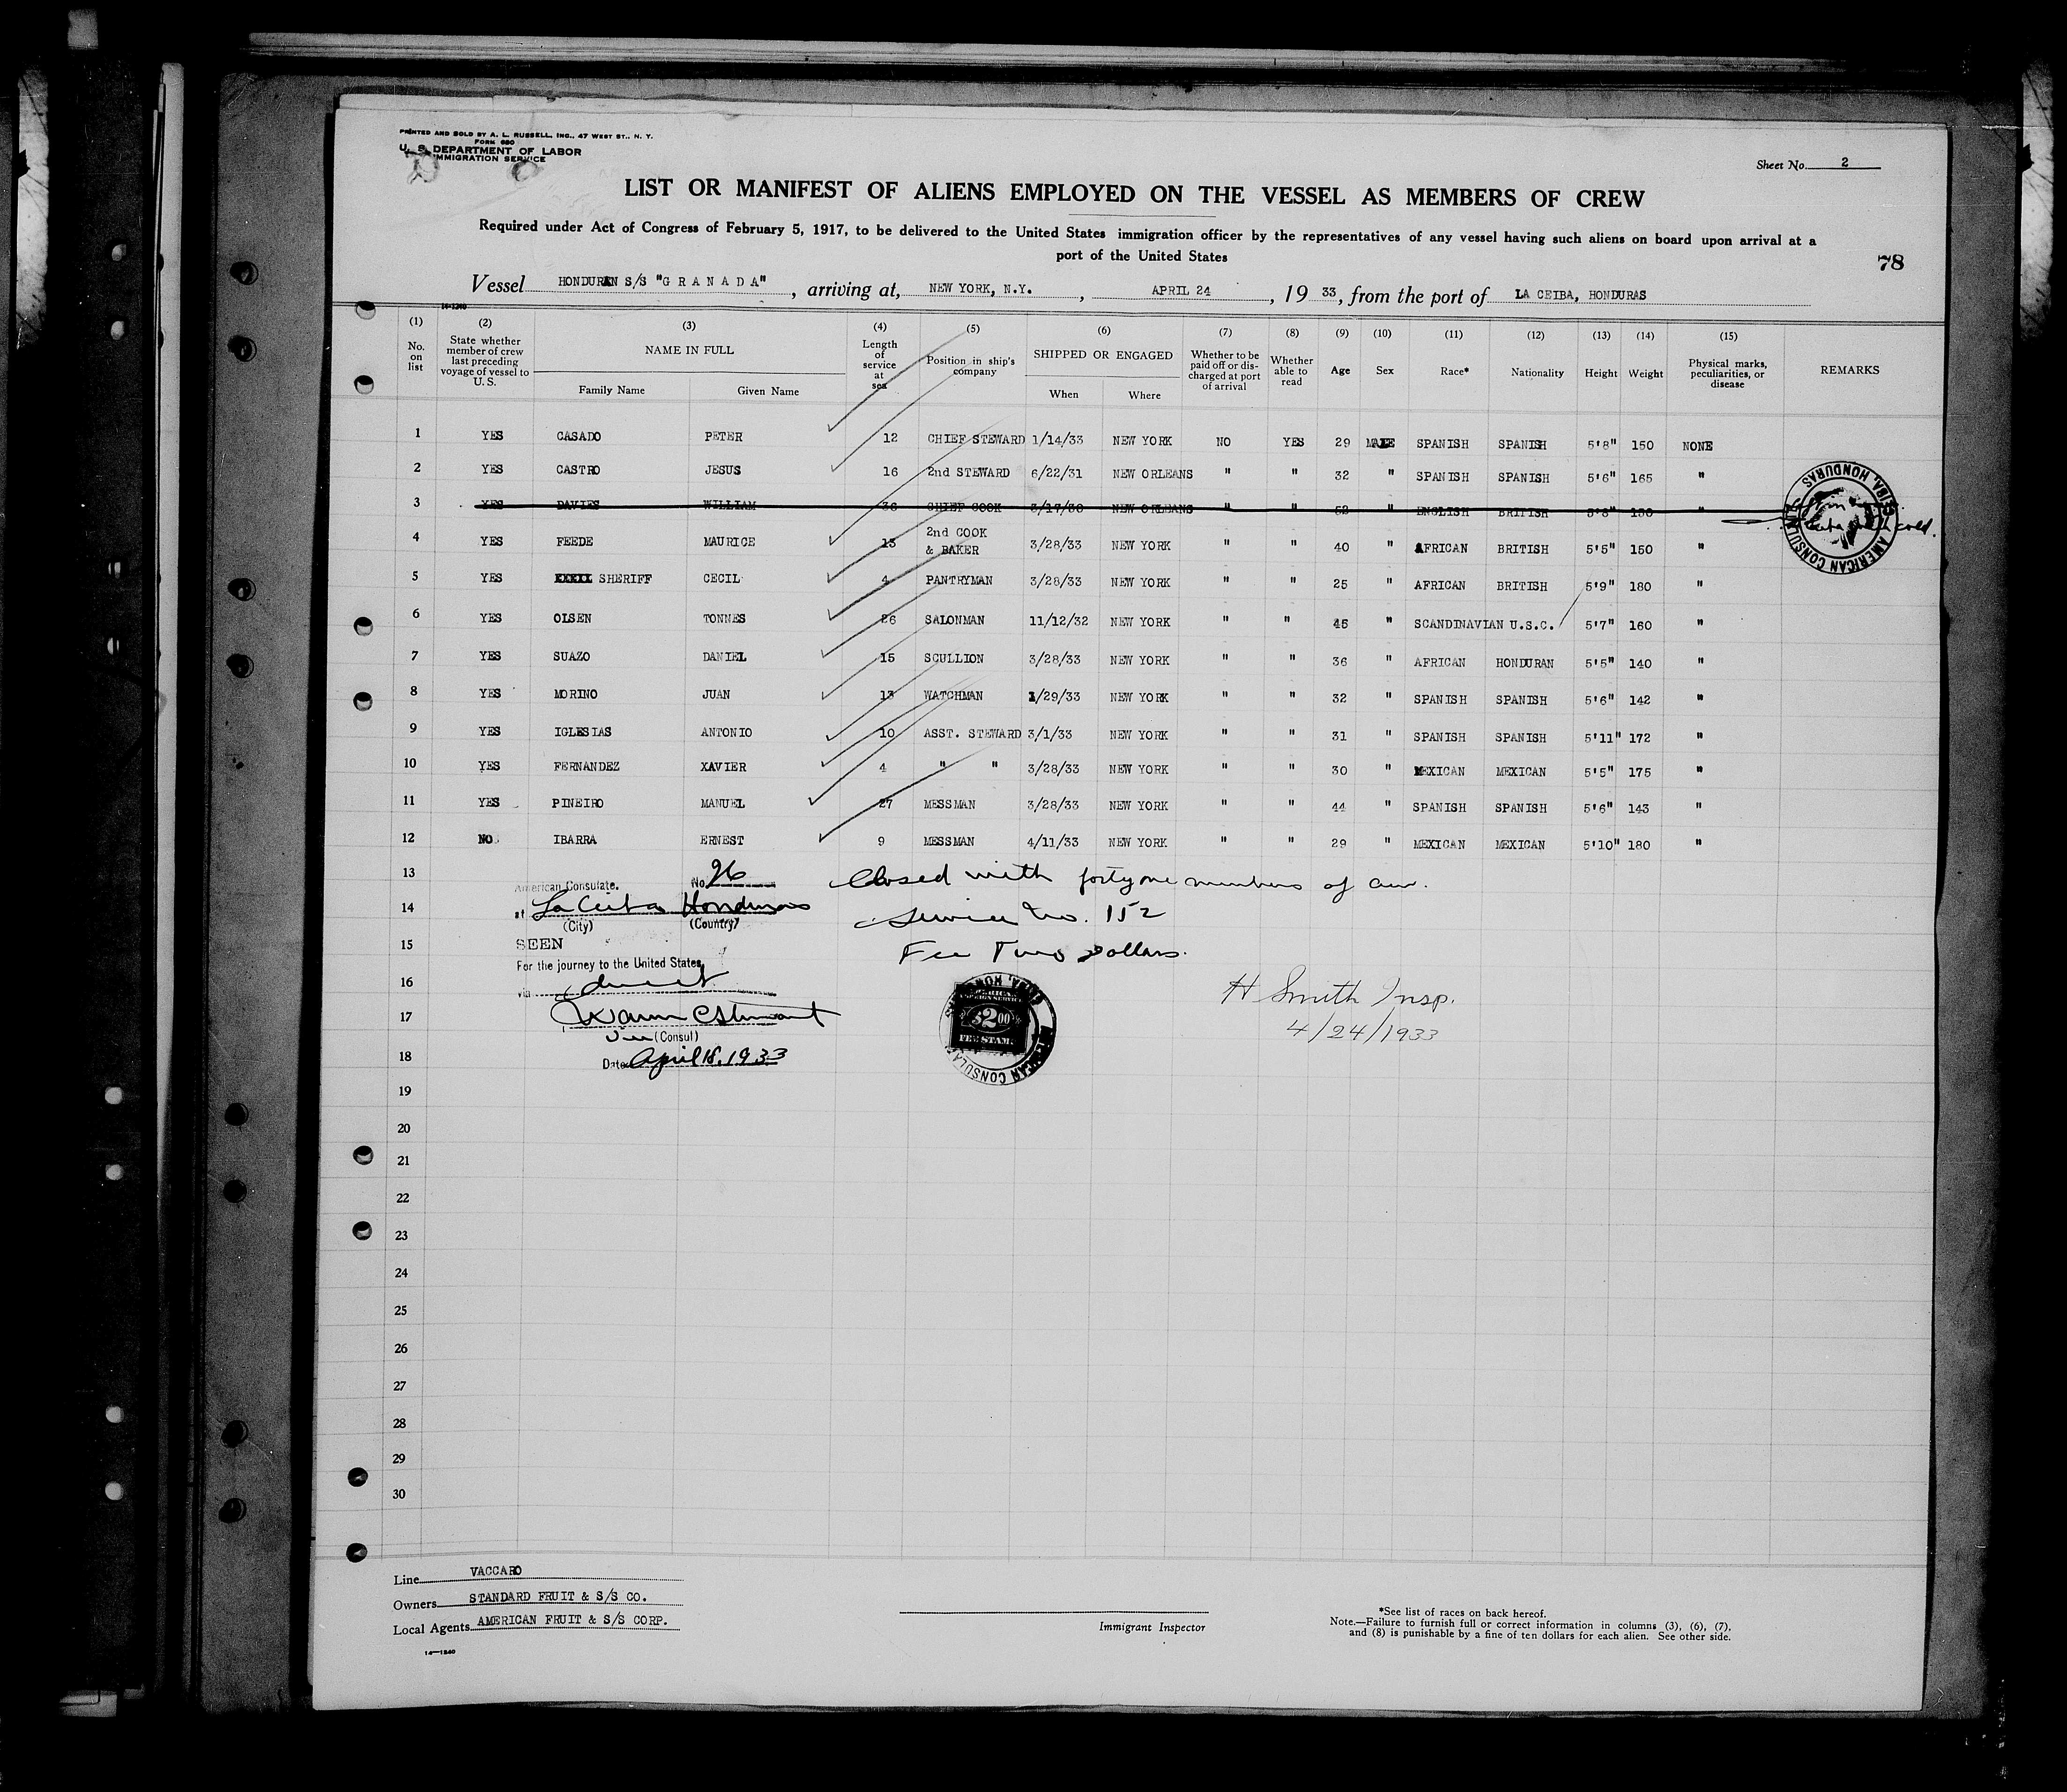 PRINTED AND SOLD BY A. L. RUSSELL, INC., 47 WEST ST., N. Y.
FORM 680
U. S. DEPARTMENT OF LABOR
IMMIGRATION SERVICE
Sheet No. 2
LIST OR MANIFEST OF ALIENS EMPLOYED ON THE VESSEL AS MEMBERS OF CREW
Required under Act of Congress of February 5, 1917, to be delivered to the United States immigration officer by the representatives of any vessel having such aliens on board upon arrival at a
port of the United States
78
Vessel HONDURAN S/S "G R A N A D A", arriving at, NEW YORK, N.Y., APRIL 24, 19 33, from the port of LA CEIBA, HONDURAS
14-1240
(1) (2) (3) (4) (5) (6) (7) (8) (9) (10) (11) (12) (13) (14) (15)
No. on list State whether member of crew last preceding voyage of vessel to U. S. NAME IN FULL Length of service at sea Position in ship's company SHIPPED OR ENGAGED Whether to be paid off or discharged at port of arrival Whether able to read Age Sex Race* Nationality Height Weight Physical marks, peculiarities, or disease REMARKS
Family Name Given Name When Where
1 YES CASADO PETER 12 CHIEF STEWARD 1/14/33 NEW YORK NO YES 29 MALE SPANISH SPANISH 5'8" 150 NONE
2 YES CASTRO JESUS 16 2nd STEWARD 6/22/31 NEW ORLEANS " " 32 " SPANISH SPANISH 5'6" 165 "
3 YES DAVIES WILLIAM 36 CHIEF COOK 3/17/30 NEW ORLEANS " " 52 " ENGLISH BRITISH 5'8" 150 "
4 YES FEEDE MAURICE 13 2nd COOK & BAKER 3/28/33 NEW YORK " " 40 " AFRICAN BRITISH 5'5" 150 "
5 YES SHERIFF CECIL 4 PANTRYMAN 3/28/33 NEW YORK " " 25 " AFRICAN BRITISH 5'9" 180 "
6 YES OLSEN TONNES 26 SALONMAN 11/12/32 NEW YORK " " 45 " SCANDINAVIAN U.S.C. 5'7" 160 "
7 YES SUAZO DANIEL 15 SCULLION 3/28/33 NEW YORK " " 36 " AFRICAN HONDURAN 5'5" 140 "
8 YES MORINO JUAN 13 WATCHMAN 1/29/33 NEW YORK " " 32 " SPANISH SPANISH 5'6" 142 "
9 YES IGLESIAS ANTONIO 10 ASST. STEWARD 3/1/33 NEW YORK " " 31 " SPANISH SPANISH 5'11" 172 "
10 YES FERNANDEZ XAVIER 4 " " 3/28/33 NEW YORK " " 30 " MEXICAN MEXICAN 5'5" 175 "
11 YES PINEIRO MANUEL 27 MESSMAN 3/28/33 NEW YORK " " 44 " SPANISH SPANISH 5'6" 143 "
12 NO IBARRA ERNEST 9 MESSMAN 4/11/33 NEW YORK " " 29 " MEXICAN MEXICAN 5'10" 180 "
AMERICAN CONSULAR
CEIBA, HONDURAS
13 American Consulate. No. 26 Closed with fortyone members of crew.
14 at La Ceiba Honduras Service No. 152
(City) (Country)
15 SEEN Fee Two Dollars.
For the journey to the United States
16 via direct
H Smith Insp.
17
4/24/1933
Vice (Consul)
18 Date April 18, 1933
$2.00
FEE STAMP
19
20
21
22
23
24
25
26
27
28
29
30
Line VACCARO
Owners STANDARD FRUIT & S/S CO.
Local Agents AMERICAN FRUIT & S/S CORP.
14-1240
Immigrant Inspector
*See list of races on back hereof.
Note.—Failure to furnish full or correct information in columns (3), (6), (7),
and (8) is punishable by a fine of ten dollars for each alien. See other side.